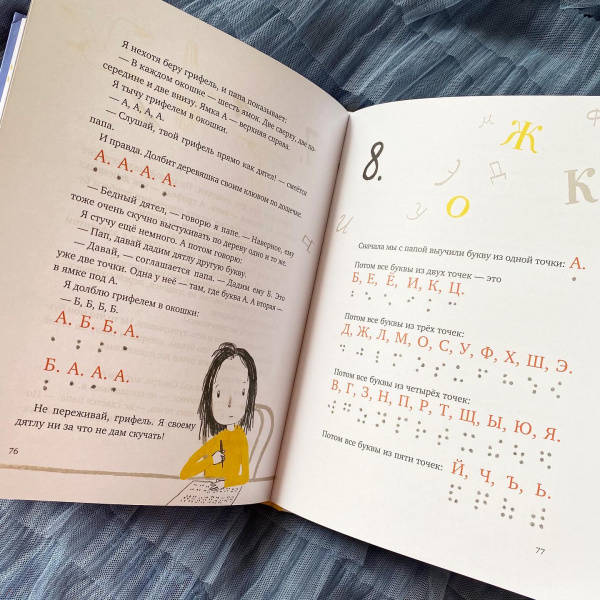 Я нехотя беру грифель, и папа показывает:
— В каждом окошке — шесть ямок. Две сверху, две по-
середине и две внизу. Ямка А — верхняя справа.
Я тычу грифелем в окошки.
— А, А, А, А.
— Слушай, твой грифель прямо как дятел! — смеётся
папа.
И правда. Долбит деревяшка своим клювом по дощечке.
А. А. А. А.
— Бедный дятел, — говорю я папе. — Наверное, ему
тоже очень скучно выстукивать по дереву одно и то же.
Я стучу ещё немного. А потом говорю:
— Пап, давай дадим дятлу другую букву.
— Давай, — соглашается папа. — Дадим ему Б. Это
уже две точки. Одна у неё — там, где буква А. А вторая —
в ямке под А.
Я долблю грифелем в окошки:
— Б, Б, Б, Б.
А. Б. Б. А.
Б. А. А. А.
Не переживай, грифель. Я своему
дятлу ни за что не дам скучать!
76
И
И
Ф
Ж
8.
У
Д
К
У
О
Сначала мы с папой выучили букву из одной точки: А.
Потом все буквы из двух точек — это
Б, Е, Ё, И, К, Ц.
Потом все буквы из трёх точек:
Д, Ж, Л, М, О, С, У, Ф, Х, Ш, Э.
Потом все буквы из четырёх точек:
В, Г, З, Н, П, Р, Т, Щ, Ы, Ю, Я.
Потом все буквы из пяти точек: Й, Ч, Ъ, Ь.
77